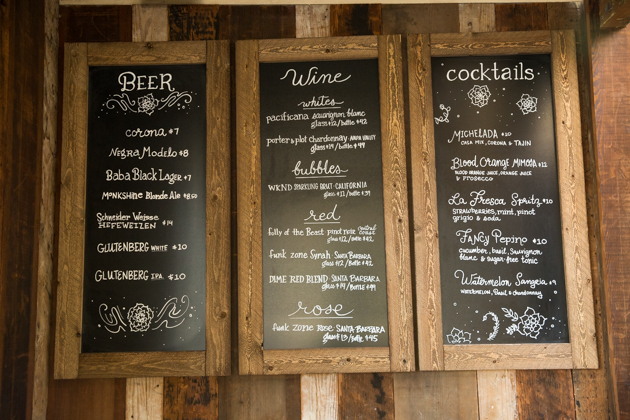 BEER
corona $7
Negra Modelo $8
Baba Black Lager $7
MONKSHINE Blonde Ale $8.50
Schneider Weisse
HEFEWEIZEN $14
GLUTENBERG WHITE $10
GLUTENBERG IPA $10
Wine
whites
pacificana sauvignon blanc
glass $12/bottle $42
porter & plot chardonnay NAPA VALLEY
glass $14/bottle $49
bubbles
WKND SPARKLING BRUT-CALIFORNIA
glass $11/bottle $39
red
Folly of the Beast pinot noir central coast
glass $12/bottle $42
funk zone Syrah SANTA BARBARA
glass $12/bottle $42
DIME RED BLEND SANTA BARBARA
glass $14/bottle $49
rose
funk zone Rose SANTA BARBARA
glass $13/bottle $45
cocktails
MICHELADA $10
CASA MIX, CORONA & TAJIN
Blood Orange MIMOSA $12
BLOOD ORANGE JUICE, ORANGE JUICE
& PROSECCO
La Fresca Spritz $10
STRAWBERRIES, mint, pinot
grigio & soda
FANCY Pepino $10
cucumber, basil, Sauvignon
blanc & sugar-free tonic
Watermelon Sangria $9
WATERMELON, Basil & chardonnay